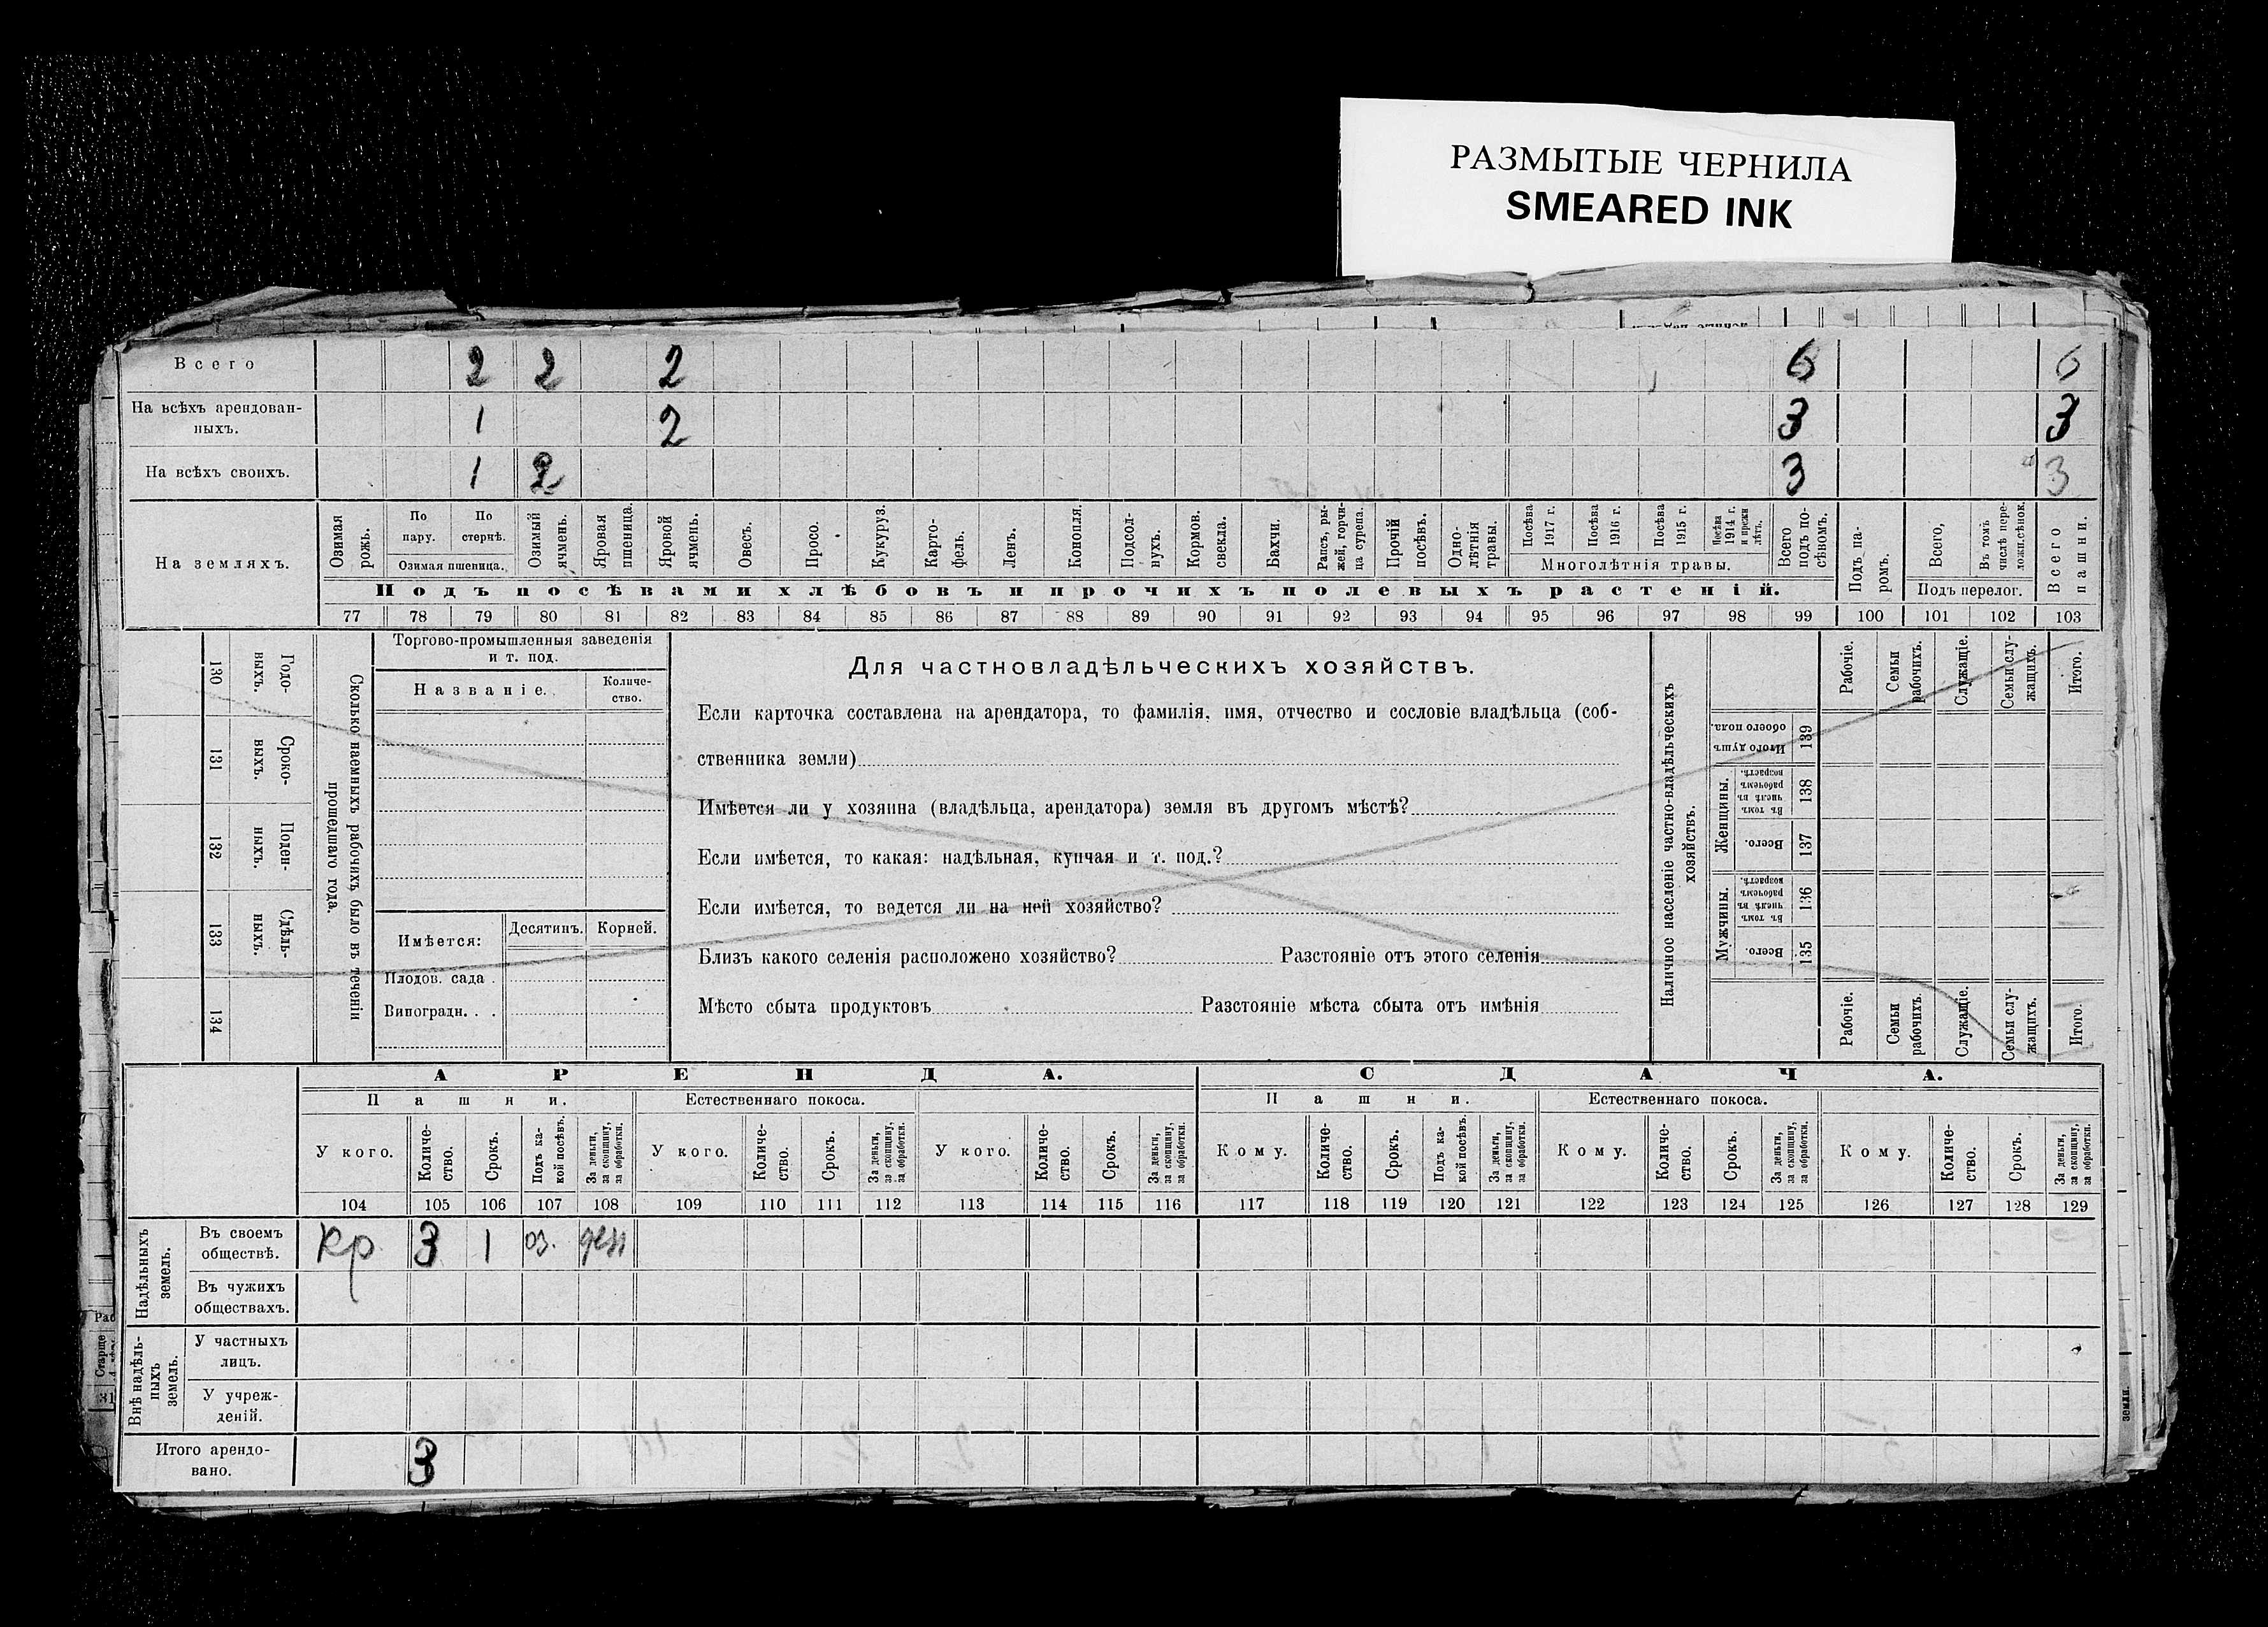 РАЗМЫТЫЕ ЧЕРНИЛА
SMEARED INK
Всего 2 2 2 6 6
На всѣхъ арендован-
ныхъ. 1 2 3 3
На всѣхъ своихъ. 1 2 3 3
На земляхъ.
Озимая рожь.
По пару.
По стернѣ.
Озимая пшеница.
Озимый ячмень.
Яровая пшеница.
Яровой ячмень.
Овесъ.
Просо.
Кукуруз.
Карто-
фель.
Ленъ.
Конопля.
Подсол-
нухъ.
Кормов. свекла.
Бахчи.
Рапсъ, ры-
жей, горчи-
ца сурепа.
Прочій посѣвъ.
Одно-
лѣтнія травы.
Посѣва 1917 г.
Посѣва 1916 г.
Посѣва 1915 г.
Посѣва 1914 г. и прежн лѣтъ.
Многолѣтнія травы.
Всего подъ по-
сѣвомъ.
Подъ па-
ромъ.
Всего,
Въ томъ числѣ пере-
ложн.сѣнок.
Подъ перелог.
Всего пашни.
Подъ посѣвами хлѣбовъ и прочихъ полевыхъ растеній.
77 78 79 80 81 82 83 84 85 86 87 88 89 90 91 92 93 94 95 96 97 98 99 100 101 102 103
130 Годо-
выхъ.
131 Сроко-
выхъ.
132 Поден-
ныхъ.
133 Сдѣль-
ныхъ.
134
Сколько наемныхъ рабочихъ было въ теченіи
прошедшаго года.
Торгово-промышленныя заведенія
и т. под.
Названіе.
Количе-
ство.
Имѣется:
Десятинъ.
Корней.
Плодов. сада .
Виноградн. . .
Для частновладѣльческихъ хозяйствъ.
Если карточка составлена на арендатора, то фамилія, имя, отчество и сословіе владѣльца (соб-
ственника земли)
Имѣется ли у хозяина (владѣльца, арендатора) земля въ другомъ мѣстѣ?
Если имѣется, то какая: надѣльная, купчая и т. под.?
Если имѣется, то ведется ли на ней хозяйство?
Близъ какого селенія расположено хозяйство? Разстояніе отъ этого селенія
Мѣсто сбыта продуктовъ Разстояніе мѣста сбыта отъ имѣнія
Наличное населеніе частно-владѣльческихъ
хозяйствъ.
Итого душъ обоего пола. 139
Женщины.
Въ томъ числѣ въ рабочемъ возрастѣ. 138
Всего. 137
Мужчины.
Въ томъ числѣ въ рабочемъ возрастѣ. 136
Всего. 135
Рабочіе.
Семьи рабочихъ.
Служащіе.
Семьи слу-
жащихъ.
Итого.
Рабочіе.
Семьи рабочихъ.
Служащіе.
Семьи слу-
жащихъ.
Итого.
АРЕНДА. СДАЧА.
Пашни. Естественнаго покоса. Пашни. Естественнаго покоса.
У кого.
Количе-
ство.
Срокъ.
Подъ ка-
кой посѣвъ.
За деньги, за скопщину, за обработки.
У кого.
Количе-
ство.
Срокъ.
За деньги, за скопщину, за обработки.
У кого.
Количе-
ство.
Срокъ.
За деньги, за скопщину, за обработки.
Кому.
Количе-
ство.
Срокъ.
Подъ ка-
кой посѣвъ.
За деньги, за скопщину, за обработки.
Кому.
Количе-
ство.
Срокъ.
За деньги, за скопщину, за обработки.
Кому.
Количе-
ство.
Срокъ.
За деньги, за скопщину, за обработки.
104 105 106 107 108 109 110 111 112 113 114 115 116 117 118 119 120 121 122 123 124 125 126 127 128 129
Надѣльныхъ земель.
Въ своемъ
обществѣ. Кр 3 1 оз. ден
Въ чужихъ
обществахъ.
Внѣ надѣль-
ныхъ земель.
У частныхъ
лицъ.
У учреж-
деній.
Итого арендо-
вано. 3
Рас
Старше
31
земли.